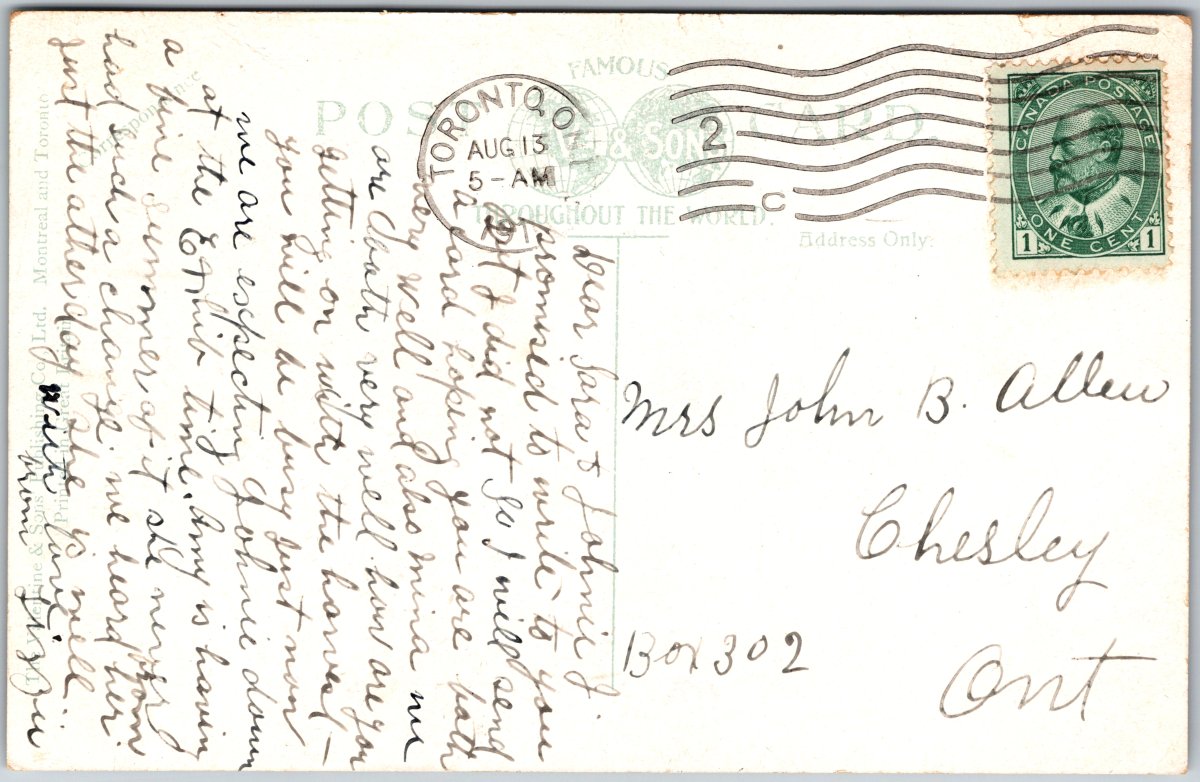 POST CARD.
FAMOUS
& SONS
THROUGHOUT THE WORLD.
TORONTO, ONT.
AUG 13
5 - AM
2
C
CANADA POSTAGE
1 ONE CENT 1
Address Only.
Mrs John B. Allen
Chesley
Box 302
Ont
Dear Sara & Johnie I
promised to write to you
but I did not So I will send
a card hoping you are both
very well and also Mina we
are both very well how are you
getting on with the harvest -
you will be busy just now
we are expecting Johnie down
at the Exhib time. Amy is having
a fine Summer of it she never
had such a change. we heard from her
just the other day She is well
with love
from
The Valentine & Sons Publishing Co., Ltd. Montreal and Toronto